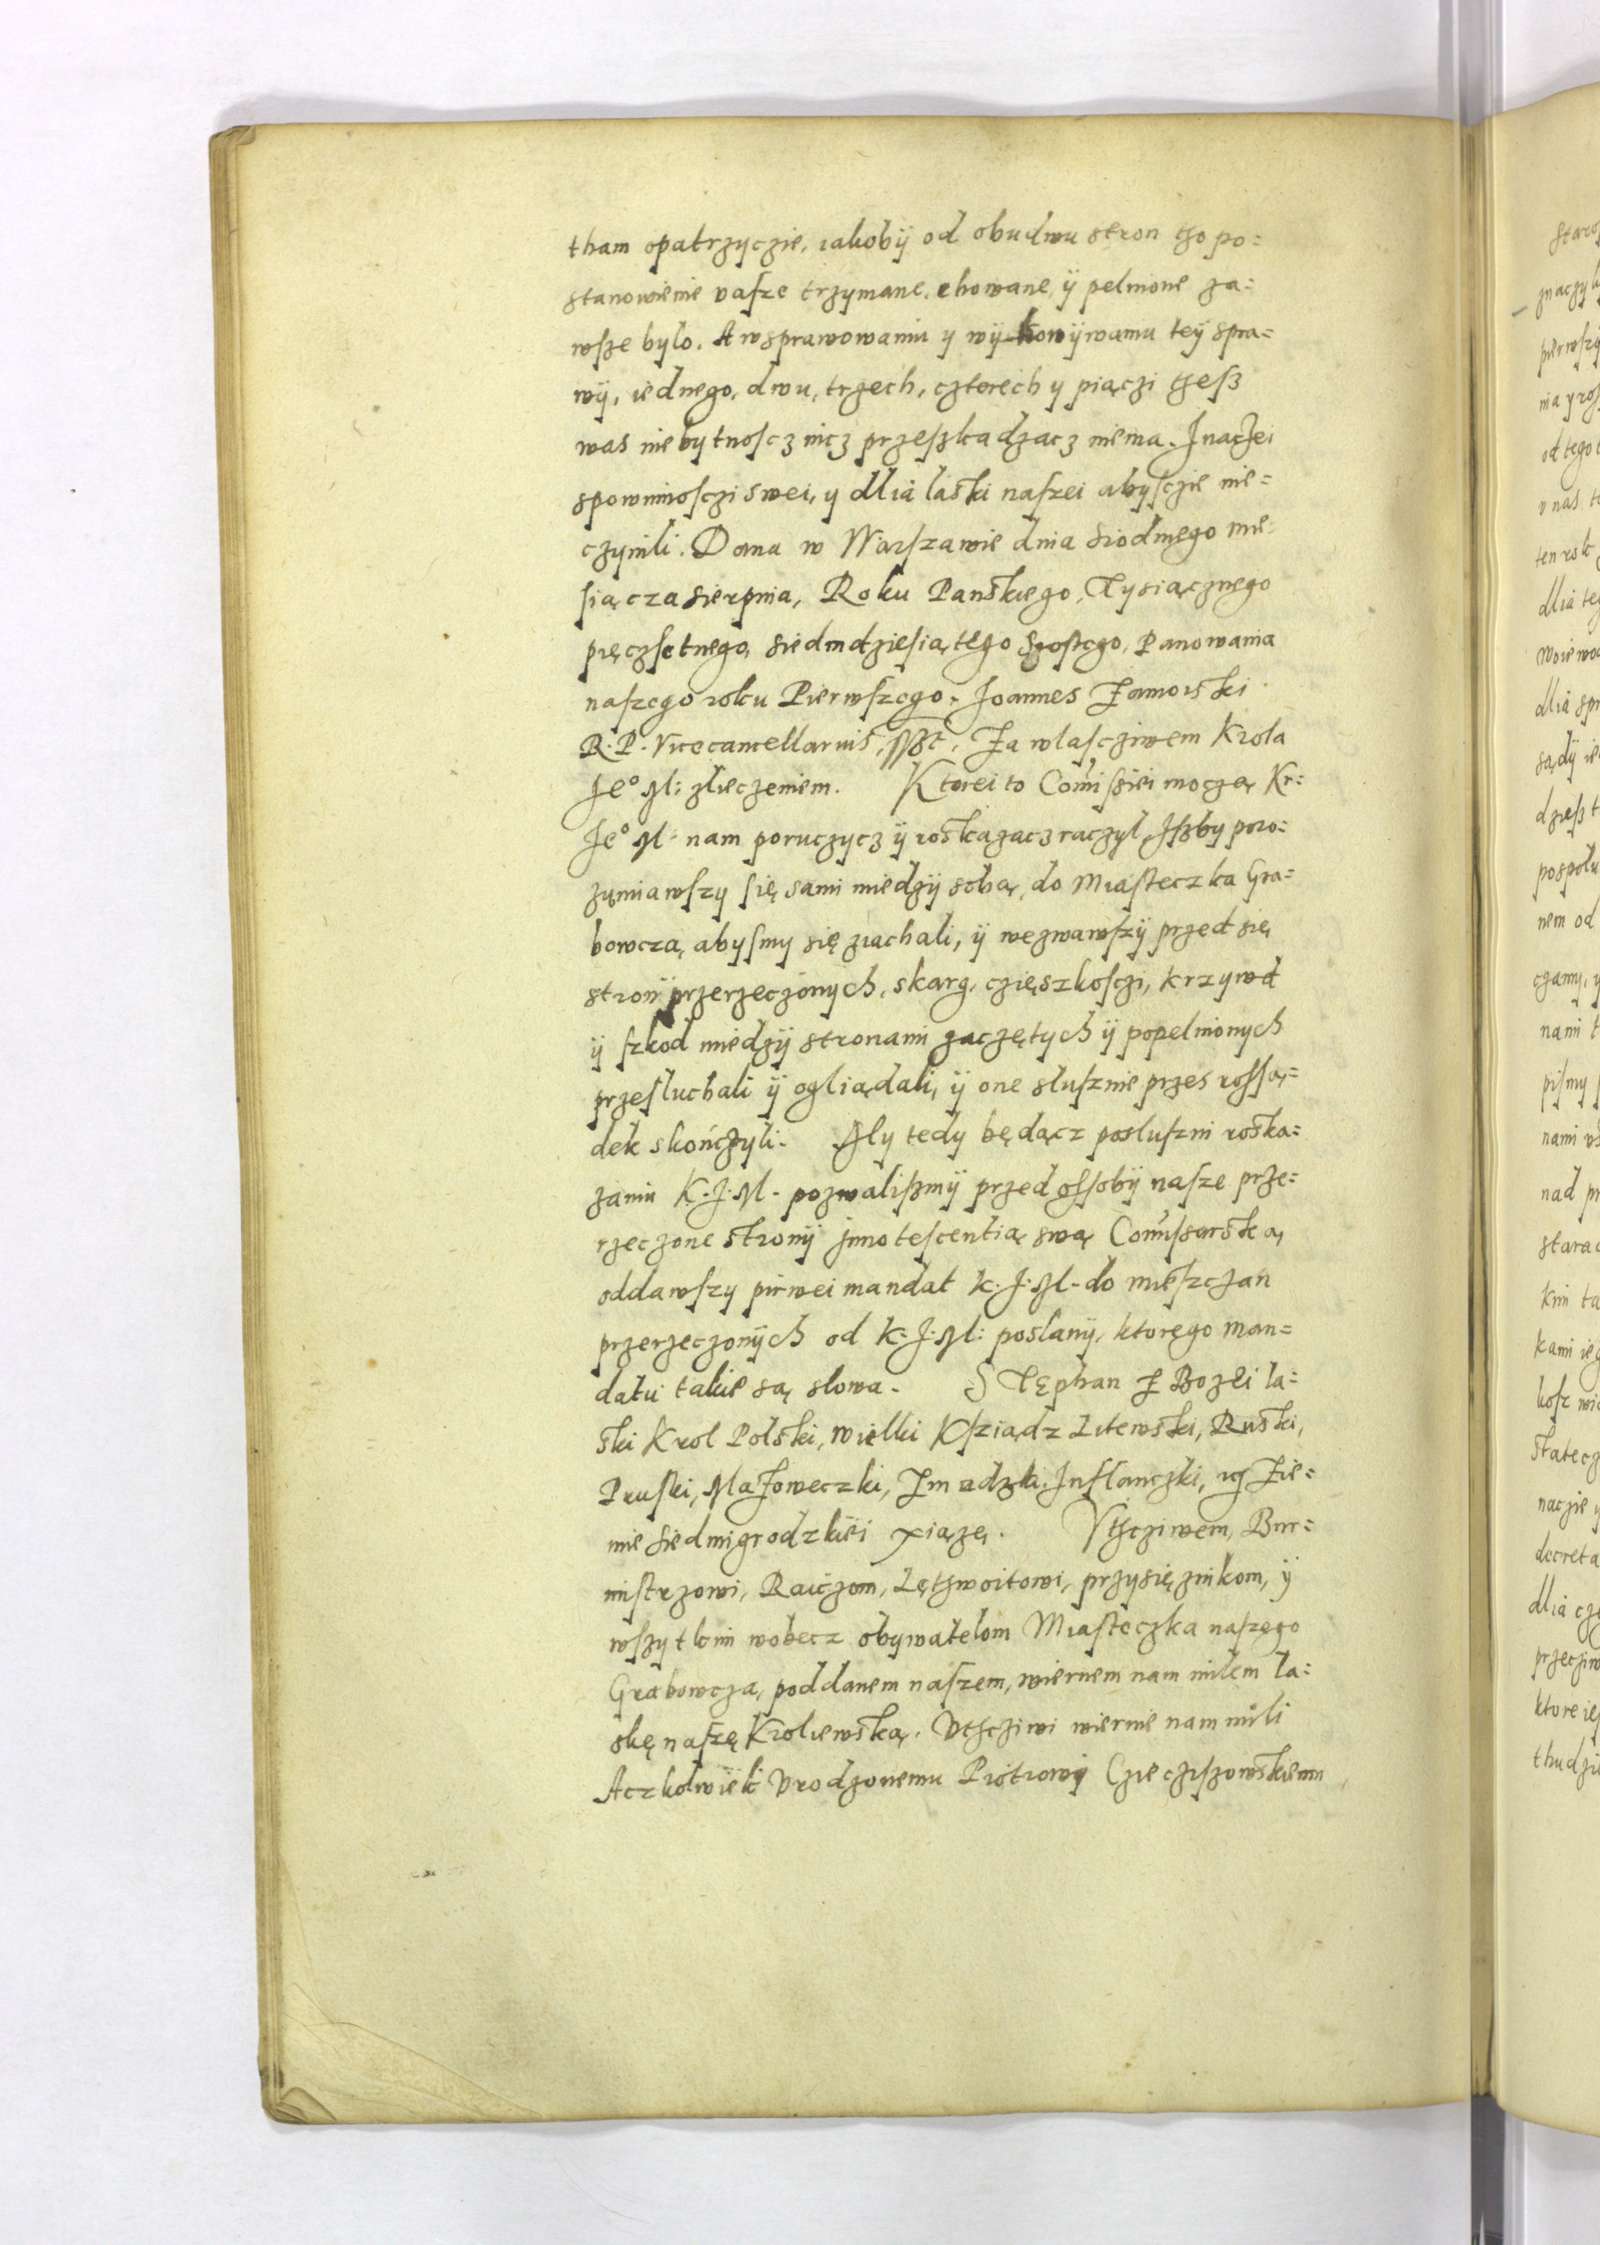 tham opatrzyczie, iakobÿ od obudwu stron tzo po=
stanowienie vasze trzymane, chowane, ÿ pelnione za=
wsze bylo. A wsprawowaniu y wÿkonÿwaniu teÿ spra=
wÿ, iednego, dwu, trzech, czterech y piączi tzesz
was niebytnoscz nicz przeszkadzacz niema. Inaczei
spowinnosczi swei, y dlia laski naszei abysczie nie=
czynili. Dana w Warszawie dnia siodmego mie
siącza sierpnia, Roku Panskiego, Tysiącznego
pięczsetnego, siedmdziesiątego szostego, Panowania
naszego roku Pierwszego. Joannes Zamoiski
R. P. Vicecancellarius, sszt, Za wlasciwem Krola
Je° M: zlieczeniem. Ktorei to Comissiei moczą Kr:
Je° M. nam poruczycz ÿ roskazacz raczyl, Iszby poro=
zumiawszy się sami miedzÿ sobą, do Miasteczka Gra=
bowcza, abysmy się ziachali, ÿ wezwawszÿ przed się
stron przerzeczonych, skarg, czięszkosczi, krzywd
ÿ szkod miedzÿ stronami zaczętych ÿ popelnionych
przesluchali ÿ ogliądali, ÿ one slusznie przes rossą=
dek skończyli. My tedy będącz posluszni roska=
zaniu K. J. M. pozwaliszmÿ przed ossobÿ nasze prze=
rzeczone stronÿ jnnotescentią swą Comissarską,
oddawszy pirwei mandat K. J. M. do mieszczan
przerzeczonÿch od K: J: M: poslanÿ, ktorego man=
datu takie są slowa. Stephan Z Bozei la=
ski Krol Polski, Wielki Ksziądz Litewski, Ruski,
Pruski, Mazoweczki, Zmudzki, Inflanczki, ÿ Zie=
mie siedmigrodzkiei xiążę. Vthcziwem, Bur=
mistrzowi, Raiczom, Lęthwoitowi, przysięznikom, ÿ
wszytkim wobecz obywatelom Miasteczka naszego
Grabowcza, poddanem naszem, wiernem nam milem la=
skę naszę Kroliewską. Vthcziwi wiernie nam mili
Aczkolwiek Vrodzonemu Piotrowi Czieczÿszowskiemu